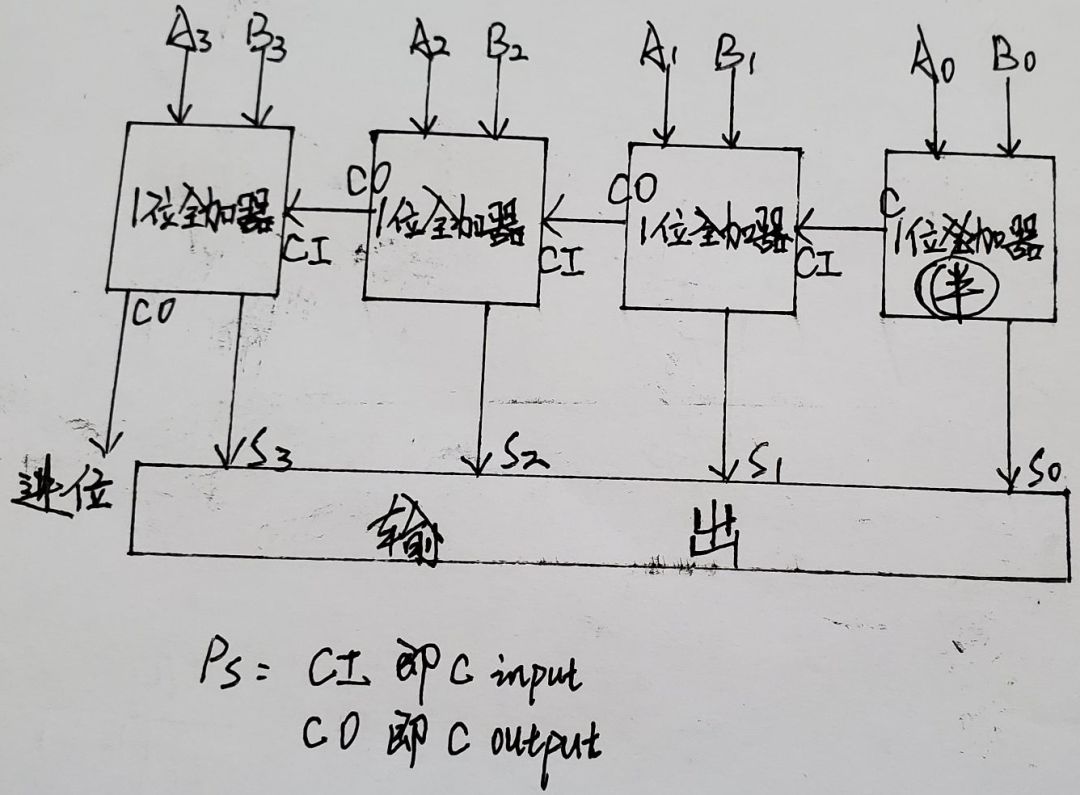 A3 B3 A2 B2 A1 B1 A0 B0
CO CO C
1位全加器 1位全加器 1位全加器 1位全加器
CI CI CI
(半)
CO
S3 S2 S1 S0
进位
输 出
Ps: CI 即 C input
CO 即 C output